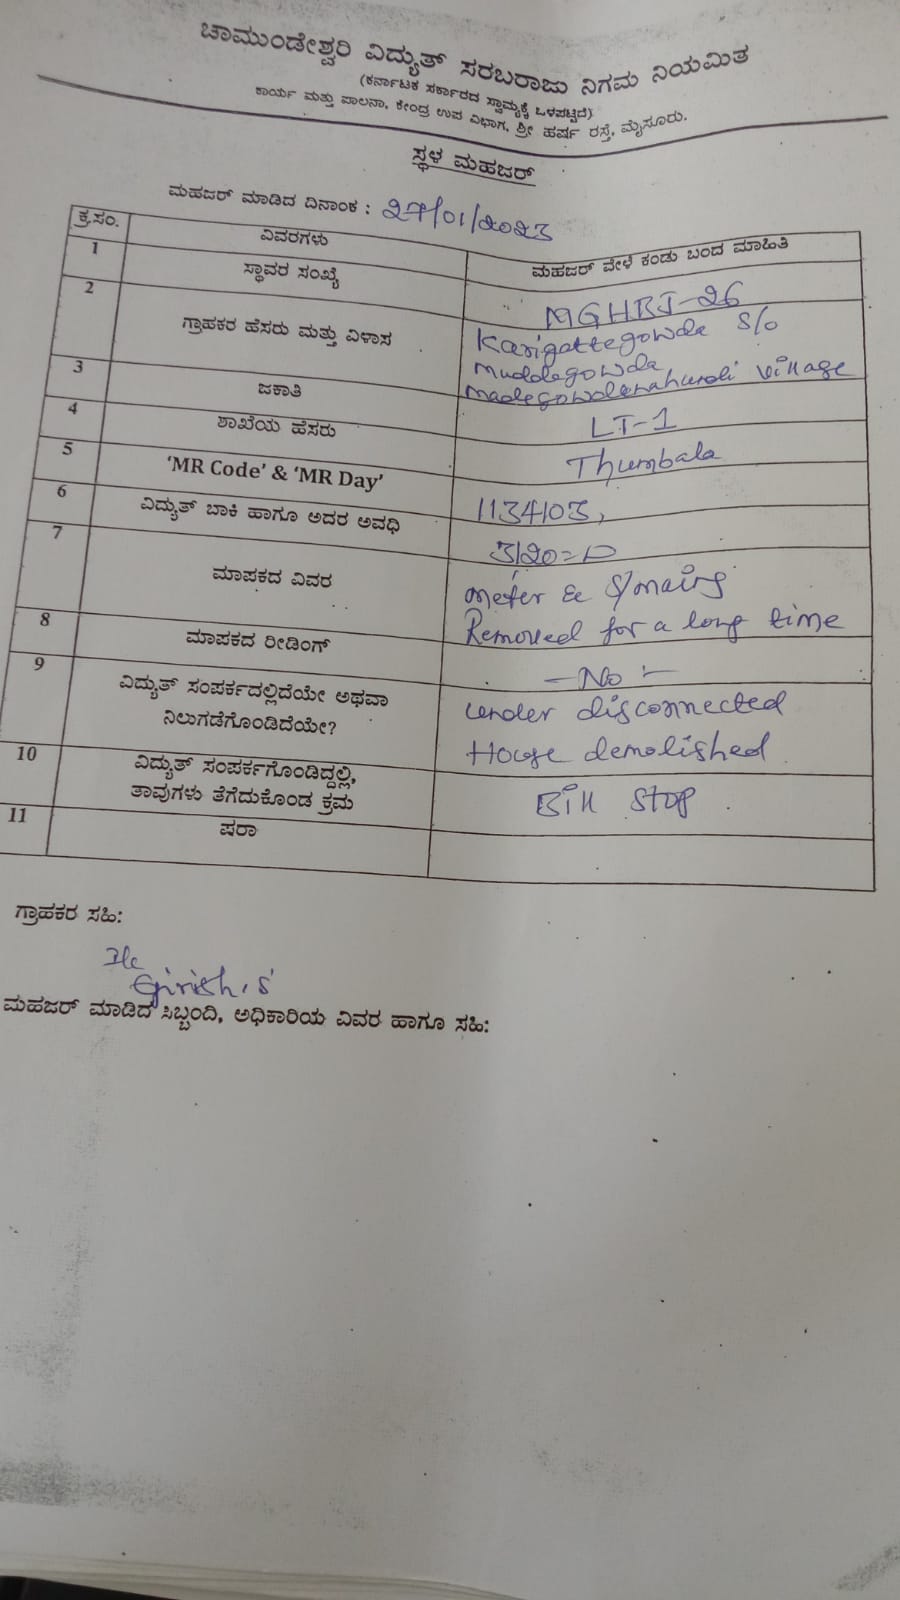 ಚಾಮುಂಡೇಶ್ವರಿ ವಿದ್ಯುತ್ ಸರಬರಾಜು ನಿಗಮ ನಿಯಮಿತ
(ಕರ್ನಾಟಕ ಸರ್ಕಾರದ ಸ್ವಾಮ್ಯಕ್ಕೆ ಒಳಪಟ್ಟಿದೆ)
ಕಾರ್ಯ ಮತ್ತು ಪಾಲನಾ, ಕೇಂದ್ರ ಉಪ ವಿಭಾಗ, ಶ್ರೀ ಹರ್ಷ ರಸ್ತೆ, ಮೈಸೂರು.
ಸ್ಥಳ ಮಹಜರ್
ಮಹಜರ್ ಮಾಡಿದ ದಿನಾಂಕ : 27/01/2023
ಕ್ರ.ಸಂ. ವಿವರಗಳು ಮಹಜರ್ ವೇಳೆ ಕಂಡು ಬಂದ ಮಾಹಿತಿ
1 ಸ್ಥಾವರ ಸಂಖ್ಯೆ MGHBJ-26
2 ಗ್ರಾಹಕರ ಹೆಸರು ಮತ್ತು ವಿಳಾಸ Karigattegowda S/o
Muddegowda
village
3 ಜಕಾತಿ LT-1
4 ಶಾಖೆಯ ಹೆಸರು Thumbala
5 'MR Code' & 'MR Day' 1134103,
6 ವಿದ್ಯುತ್ ಬಾಕಿ ಹಾಗೂ ಅದರ ಅವಧಿ
7 ಮಾಪಕದ ವಿವರ meter & S/mains
Removed for a long time
8 ಮಾಪಕದ ರೀಡಿಂಗ್ - No :-
9 ವಿದ್ಯುತ್ ಸಂಪರ್ಕದಲ್ಲಿದೆಯೇ ಅಥವಾ under disconnected
ನಿಲುಗಡೆಗೊಂಡಿದೆಯೇ? House demolished
10 ವಿದ್ಯುತ್ ಸಂಪರ್ಕಗೊಂಡಿದ್ದಲ್ಲಿ, Bill stop
ತಾವುಗಳು ತೆಗೆದುಕೊಂಡ ಕ್ರಮ
11 ಷರಾ
ಗ್ರಾಹಕರ ಸಹಿ:
Girish.S
ಮಹಜರ್ ಮಾಡಿದ ಸಿಬ್ಬಂದಿ, ಅಧಿಕಾರಿಯ ವಿವರ ಹಾಗೂ ಸಹಿ: